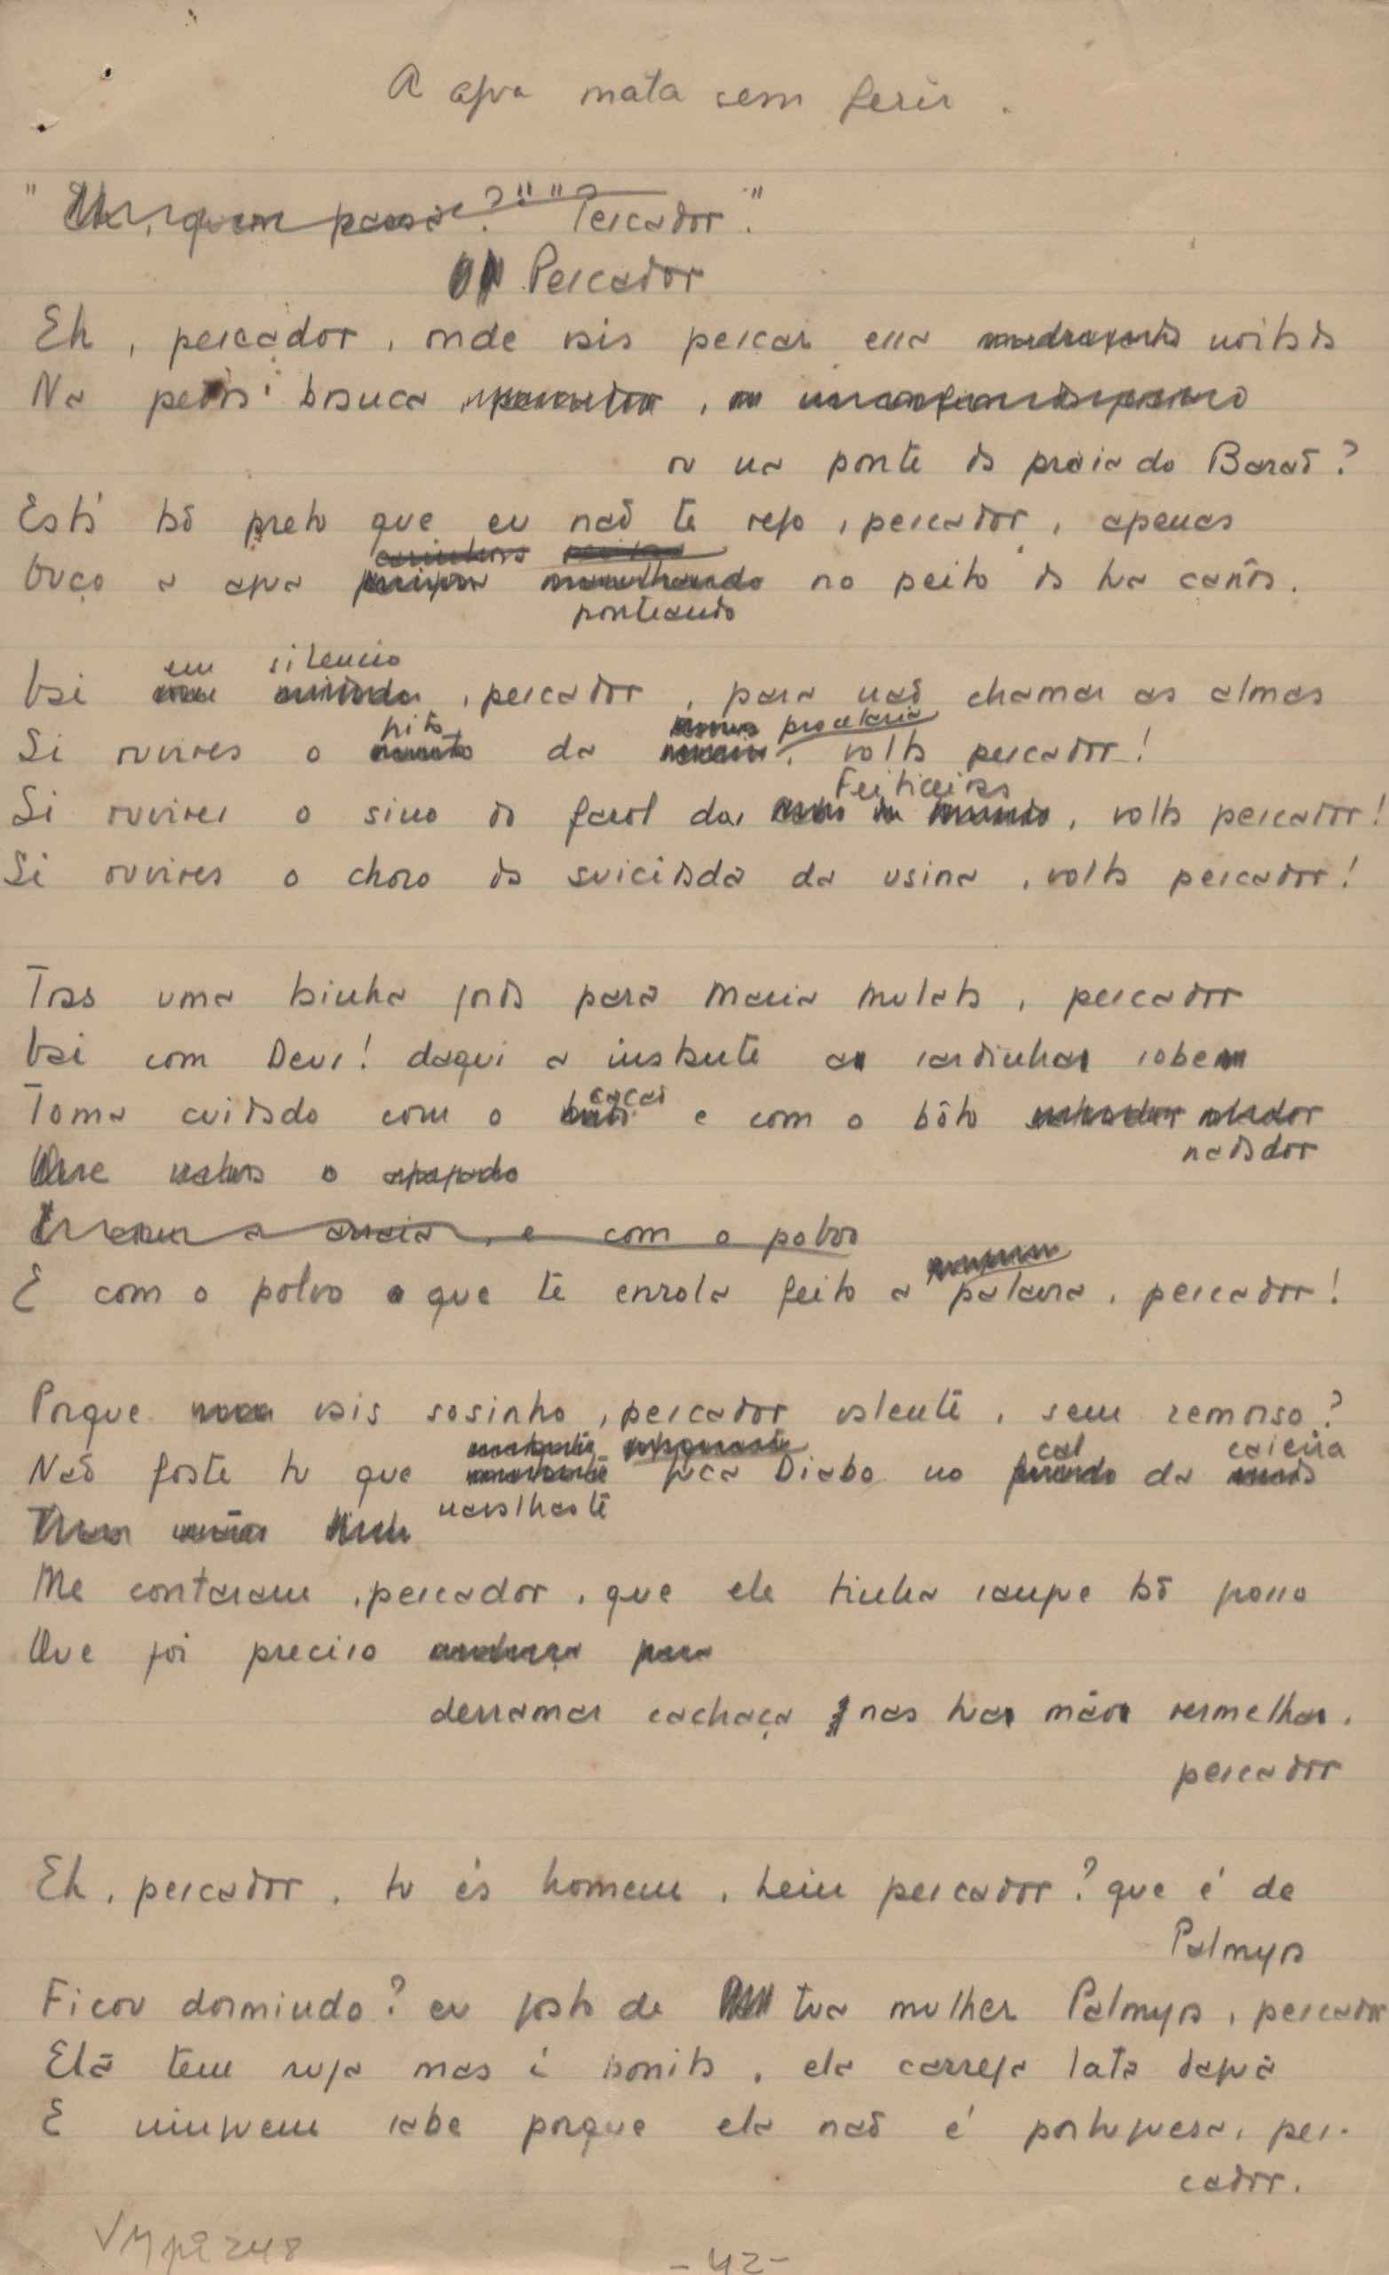 A agua mata sem ferir.
" quem passa? "" Pescador."
Pescador
Eh, pescador, onde vais pescar essa madrugada noitada
Na pedra branca, ou
ou na ponte da praia do Barão?
Está tão preto que eu não te vejo, pescador, apenas
Ouço a agua marulhando no peito da tua canôa.
ponteando
em silencio
Vai, pescador, para não chamar as almas
pito procelaria
Si ouvires o da, volta pescador!
Feiticeiras
Si ouvires o sino do farol das, volta pescador!
Si ouvires o choro da suicidada da usina, volta pescador!
Traz uma tainha gorda para Maria Mulata, pescador
Vai com Deus! daqui a instante as sardinhas sobem
cação
Toma cuidado com o e com o bôto
nadador
Que o
a arraia, e com o polvo
E com o polvo que te enrola feito a palavra, pescador!
Porque vais sosinho, pescador valente, sem remorso?
cal caieira
Não foste tu que Juca Diabo no da
navalhaste
Me contaram, pescador, que ele tinha sangue tão grosso
Que foi preciso para
derramar cachaça nas tuas mãos vermelhas,
pescador
Eh, pescador, tu és homem, hein pescador? que é de
Palmyra
Ficou dormindo? eu gosto de tua mulher Palmyra, pescador
Elà tem ruga mas é bonita, ela carrega lata dagua
E ninguem sabe porque ela não é portuguesa, pes-
cador.
VM pi 248
-42-